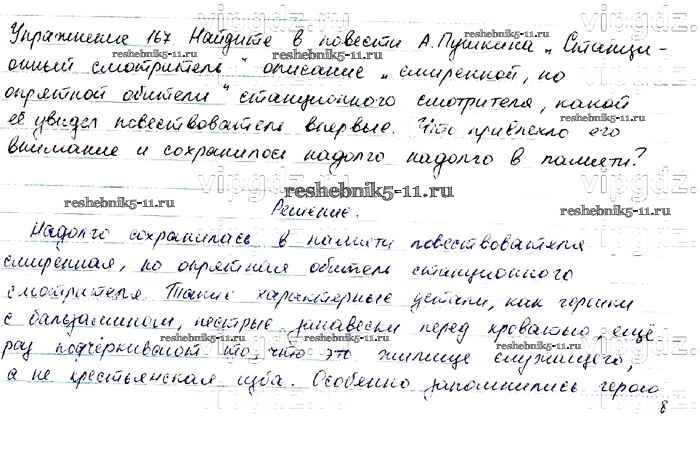 Упражнение 167 Найдите в повести А.Пушкина „Станци-
онный смотритель" описание „смиренной, но
опрятной обители" станционного смотрителя, какой
её увидел повествователь впервые. Что привлекло его
внимание и сохранилось надолго надолго в памяти?
Решение.
Надолго сохранилась в памяти повествователя
смиренная, но опрятная обитель станционного
смотрителя. Такие характерные детали, как горшки
с бальзамином, пестрые занавески перед кроватью, ещё
раз подчёркивают то, что это жилище служащего,
а не крестьянская изба. Особенно запомнились герою
8
reshebnik5-11.ru
vipgdz.